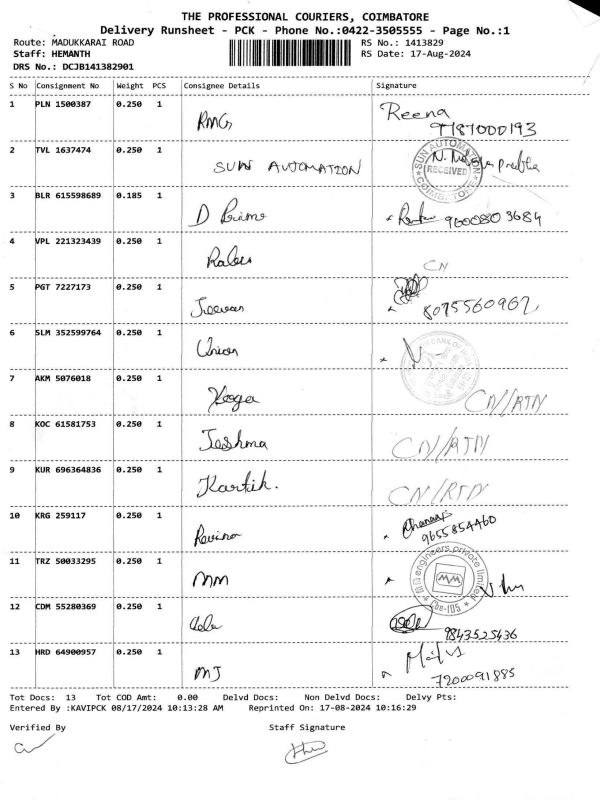 THE PROFESSIONAL COURIERS, COIMBATORE
Delivery Runsheet - PCK - Phone No.:0422-3505555 - Page No.:1
Route: MADUKKARAI ROAD RS No.: 1413829
Staff: HEMANTH RS Date: 17-Aug-2024
DRS No.: DCJB141382901
S No Consignment No Weight PCS Consignee Details Signature
1 PLN 1500387 0.250 1 RMG Reena
9787000193
2 TVL 1637474 0.250 1 SUN AUTOMATION SUN AUTOMATION RECEIVED COIMBATORE
3 BLR 615598689 0.185 1 D Prime 9600803684
4 VPL 221323439 0.250 1 CN
5 PGT 7227173 0.250 1 Jeevan
8075560962
6 SLM 352599764 0.250 1 Union
7 AKM 5076018 0.250 1 Yoga CN//RTN
8 KOC 61581753 0.250 1 Jeshma CN//RTN
9 KUR 696364836 0.250 1 Kartik. CN/RTN
10 KRG 259117 0.250 1
9655854460
11 TRZ 50033295 0.250 1 MM engineers private limited MM Cbe-105
12 CDM 55280369 0.250 1
9843525436
13 HRD 64900957 0.250 1 MJ
7200091885
Tot Docs: 13 Tot COD Amt: 0.00 Delvd Docs: Non Delvd Docs: Delvy Pts:
Entered By :KAVIPCK 08/17/2024 10:13:28 AM Reprinted On: 17-08-2024 10:16:29
Verified By Staff Signature